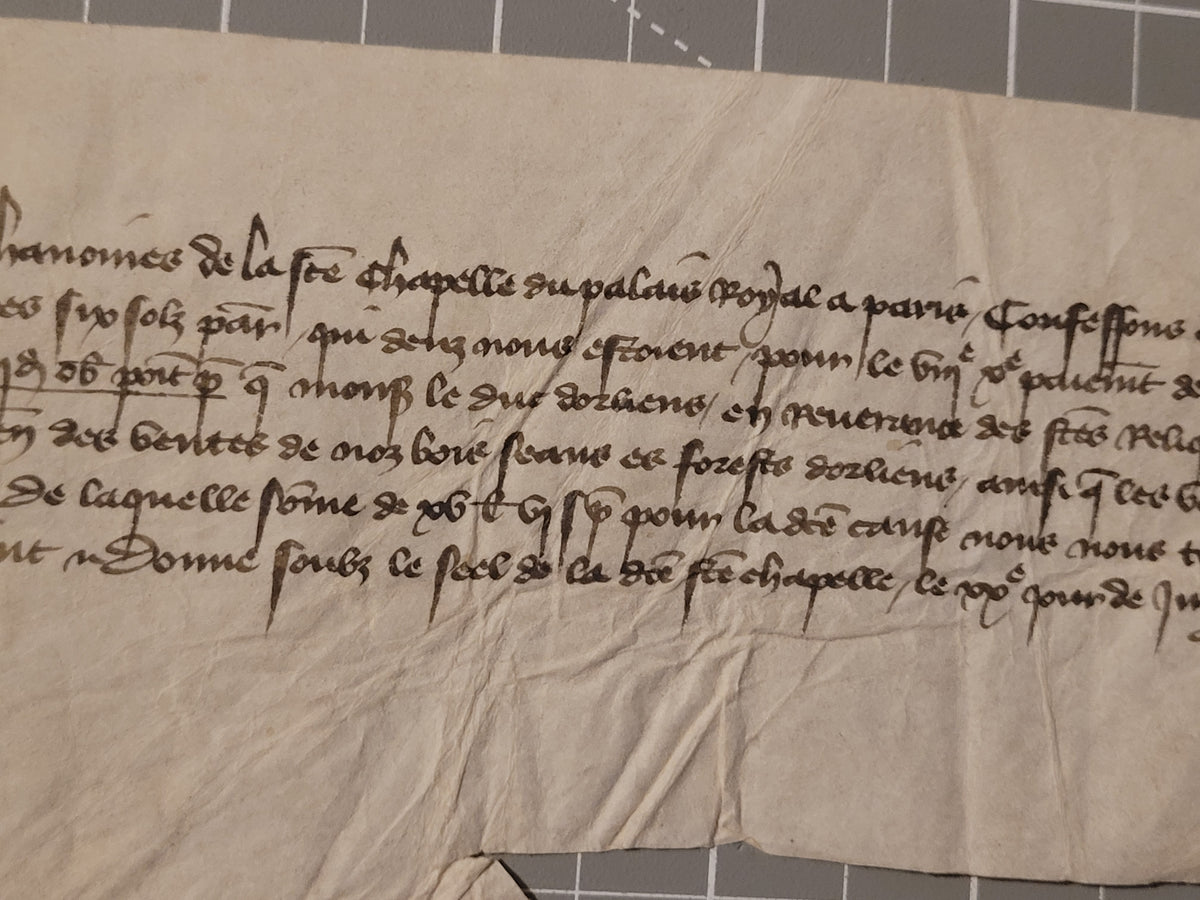 hanoines de la sc̃e Chapelle du palais Royal a paris / Confessons
es six solz par̃ / qui deuz nous estoient / pour le viijᵉ xᵉ paiemt̃ de
ob̃ poit̃ p̃ q̃ mons̃ le duc dorliens / en Reuerance des sc̃es Reliq
en̄ des ventes de noz bois seans es forests dorliens / ainsi q̃ les v
De laquelle som̃e de xv l̃ vj s̃ p̃ pour la dc̃e cause nous nous t
nt Donne soubz le seel de la dc̃e sc̃e chapelle / le xxᵉ jour de Ju